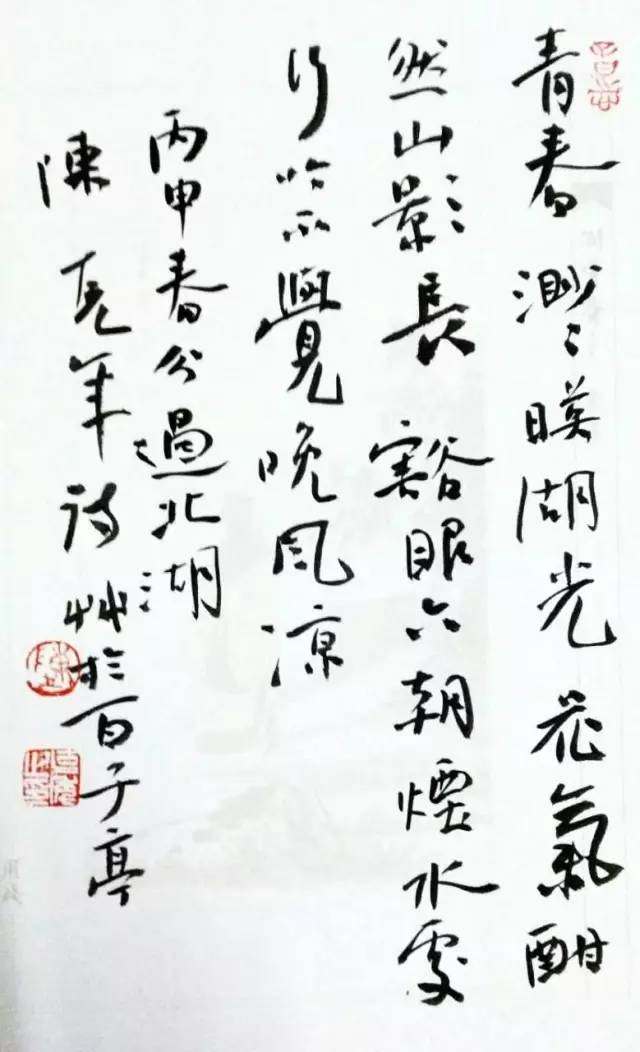 青春渺渺映湖光花氣酣
然山影長豁眼六朝煙水處
行吟不覺晚風涼
丙申春分過北湖
陳克年詩艸於百子亭